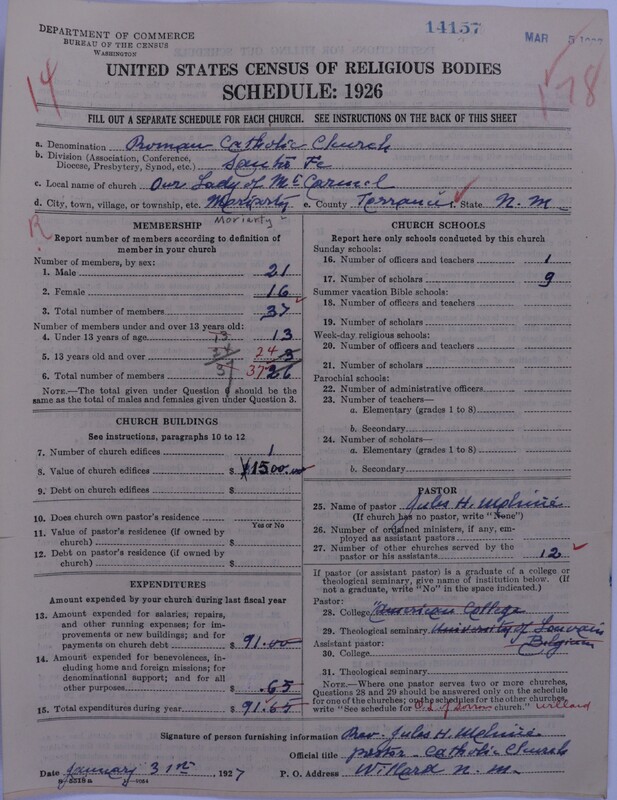 DEPARTMENT OF COMMERCE
BUREAU OF THE CENSUS
WASHINGTON
14157
MAR 5
14
178
UNITED STATES CENSUS OF RELIGIOUS BODIES
SCHEDULE: 1926
FILL OUT A SEPARATE SCHEDULE FOR EACH CHURCH. SEE INSTRUCTIONS ON THE BACK OF THIS SHEET
a. Denomination Roman Catholic Church
b. Division (Association, Conference, Diocese, Presbytery, Synod, etc.) Santa Fe
c. Local name of church Our Lady of Mt Carmel
d. City, town, village, or township, etc. Moriarty e. County Torrance f. State N. M.
Moriarty
R
MEMBERSHIP
Report number of members according to definition of member in your church
Number of members, by sex:
1. Male 21
2. Female 16
3. Total number of members 37
Number of members under and over 13 years old:
4. Under 13 years of age 13 13
5. 13 years old and over 24 24
6. Total number of members 37 37 26
NOTE.—The total given under Question 6 should be the same as the total of males and females given under Question 3.
CHURCH BUILDINGS
See instructions, paragraphs 10 to 12
7. Number of church edifices 1
8. Value of church edifices $ 1500.00
9. Debt on church edifices $
10. Does church own pastor's residence
Yes or No
11. Value of pastor's residence (if owned by church) $
12. Debt on pastor's residence (if owned by church) $
EXPENDITURES
Amount expended by your church during last fiscal year
13. Amount expended for salaries, repairs, and other running expenses; for improvements or new buildings; and for payments on church debt $ 91.00
14. Amount expended for benevolences, including home and foreign missions; for denominational support; and for all other purposes $ .65
15. Total expenditures during year $ 91.65
CHURCH SCHOOLS
Report here only schools conducted by this church
Sunday schools:
16. Number of officers and teachers 1
17. Number of scholars 9
Summer vacation Bible schools:
18. Number of officers and teachers
19. Number of scholars
Week-day religious schools:
20. Number of officers and teachers
21. Number of scholars
Parochial schools:
22. Number of administrative officers
23. Number of teachers—
a. Elementary (grades 1 to 8)
b. Secondary
24. Number of scholars—
a. Elementary (grades 1 to 8)
b. Secondary
PASTOR
25. Name of pastor Jules H. Molinié
(If church has no pastor, write "None")
26. Number of ordained ministers, if any, employed as assistant pastors
27. Number of other churches served by the pastor or his assistants 12
If pastor (or assistant pastor) is a graduate of a college or theological seminary, give name of institution below. (If not a graduate, write "No" in the space indicated.)
Pastor:
28. College American College
29. Theological seminary University of Louvain
Assistant pastor: Belgium
30. College
31. Theological seminary
NOTE.—Where one pastor serves two or more churches, Questions 28 and 29 should be answered only on the schedule for one of the churches; on the schedules for the other churches, write "See schedule for O. L. of Sorrow church." Willard
Signature of person furnishing information Rev. Jules H. Molinié
Official title pastor Catholic Church
Date January 31st, 1927 P. O. Address Willard N. M.